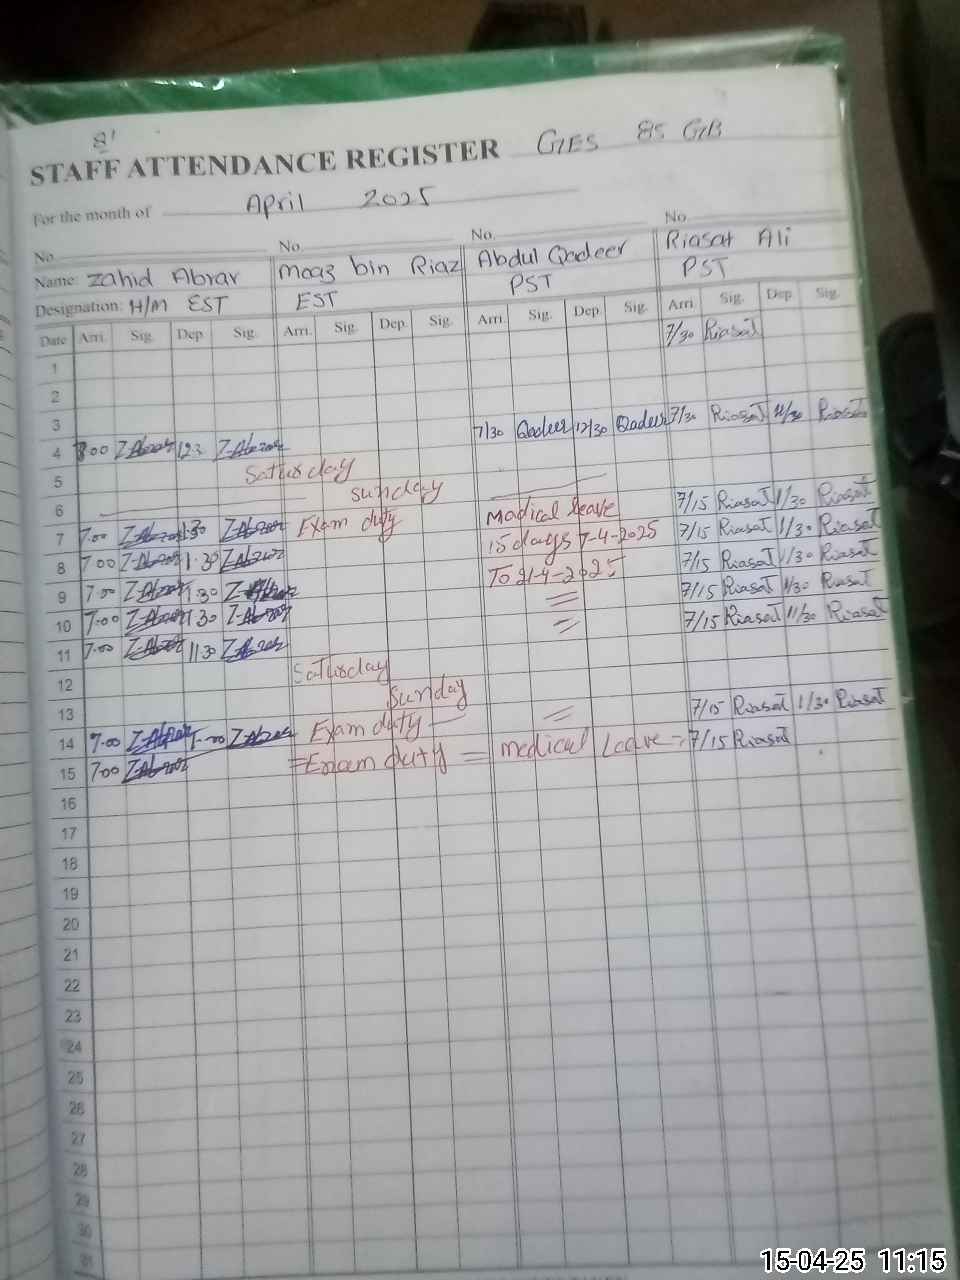 81
STAFF ATTENDANCE REGISTER GES 85 GB
For the month of April 2025
No. No. No. No.
Name: Zahid Abrar Moaz bin Riaz Abdul Qadeer Riasat Ali
Designation: H/M EST EST PST PST
Date Arri. Sig. Dep. Sig. Arri. Sig. Dep. Sig. Arri. Sig. Dep. Sig. Arri. Sig. Dep. Sig.
1 7/30 Riasat
2
3
4 8:00 Z-Abrar 12:3 Z-Abrar 7/30 Qadeer 12/30 Qadeer 7/30 Riasat Riasat
5 Saturday
6 Sunday
7 7:00 Z-Abrar 1:30 Z-Abrar Exam duty Madical leave 7/15 Riasat 1/30 Riasat
8 7:00 Z-Abrar 1:30 Z-Abrar 15 days 7-4-2025 7/15 Riasat 1/30 Riasat
9 7:00 Z-Abrar 1:30 Z-Abrar To 21-4-2025 7/15 Riasat 1/30 Riasat
10 7:00 Z-Abrar 1:30 Z-Abrar = 7/15 Riasat 1/30 Riasat
11 7:00 Z-Abrar 11:30 Z-Abrar = 7/15 Riasat 11/30 Riasat
12 Saturday
13 Sunday
14 7:00 Z-Abrar Z-Abrar Exam duty = 7/15 Riasat 1/30 Riasat
15 7:00 Z-Abrar = Exam duty = medical Leave - 7/15 Riasat
16
17
18
19
20
21
22
23
24
25
26
27
28
29
30
31
15-04-25 11:15